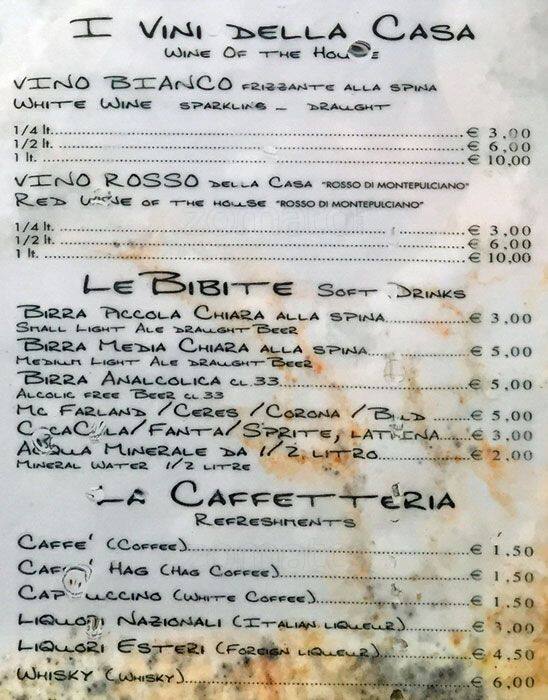 I Vini della Casa
Wine Of the House
VINO BIANCO FRIZZANTE ALLA SPINA
White Wine sparkling _ draught
1/4 lt. € 3,00
1/2 lt. € 6,00
1 lt. € 10,00
VINO ROSSO DELLA CASA "ROSSO DI MONTEPULCIANO"
Red Wine of the house "ROSSO DI MONTEPULCIANO"
1/4 lt. € 3,00
1/2 lt. € 6,00
1 lt. € 10,00
Le Bibite Soft Drinks
Birra Piccola Chiara alla spina € 3,00
Small Light Ale draught Beer
Birra Media Chiara alla spina € 5,00
Medium Light Ale draught Beer
Birra Analcolica cl 33 € 5,00
Alcolic free Beer cl 33
Mc Farland /Ceres /Corona /Bud € 5,00
CocaCola/Fanta/Sprite, lattina € 3,00
Acqua Minerale da 1/2 litro € 2,00
Mineral Water 1/2 litre
La Caffetteria
Refreshments
Caffe' (Coffee) € 1,50
Caffe' Hag (Hag Coffee) € 1,50
Cappuccino (White Coffee) € 1,50
Liquori Nazionali (Italian liqueur) € 3,00
Liquori Esteri (Foreign liqueur) € 4,50
Whisky (Whisky) € 6,00